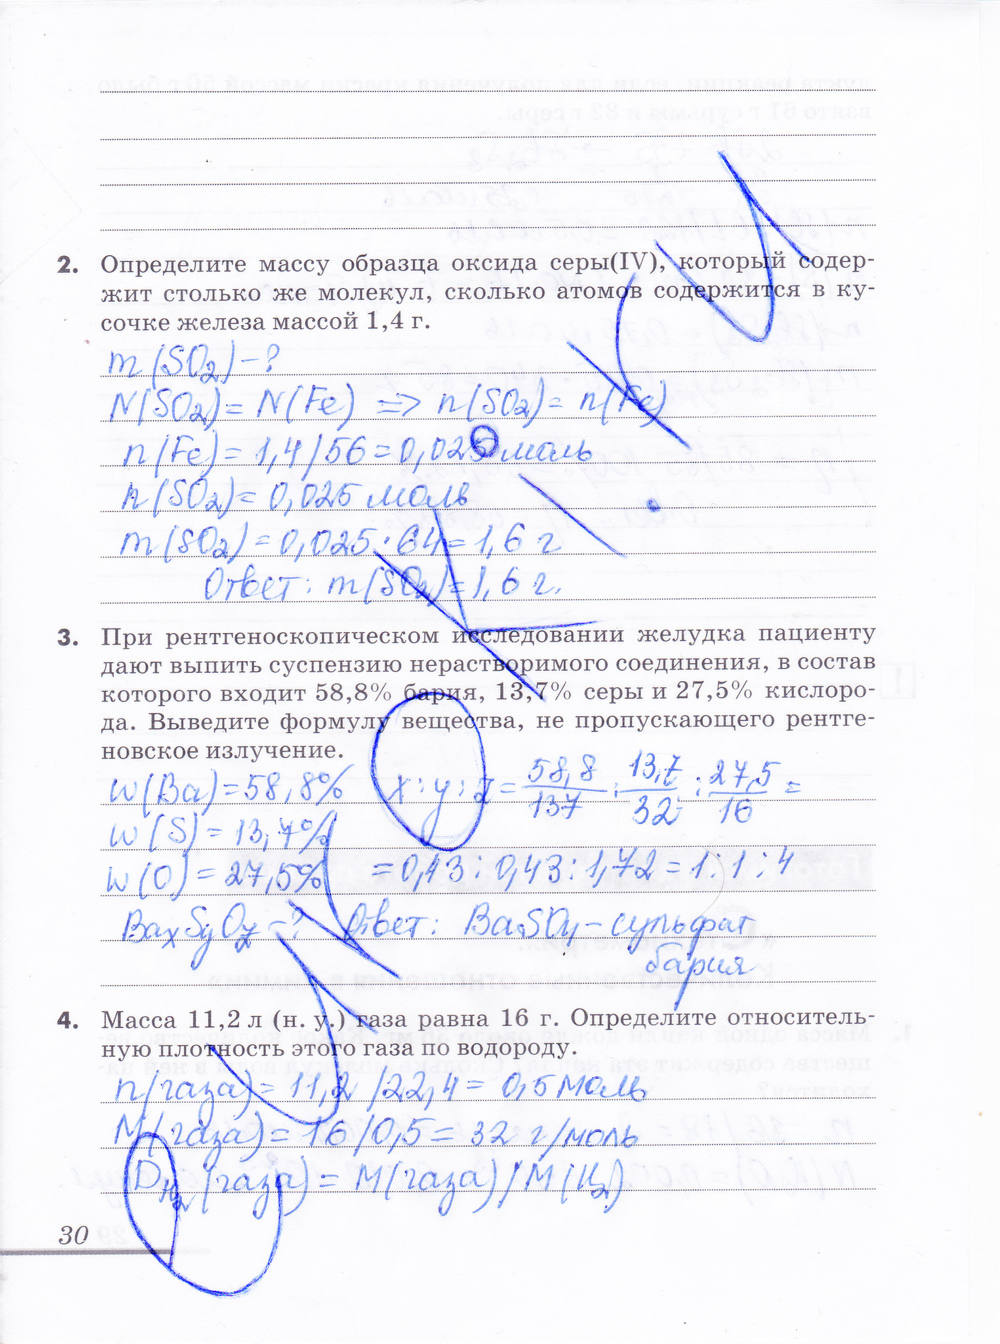 2. Определите массу образца оксида серы(IV), который содер-
жит столько же молекул, сколько атомов содержится в ку-
сочке железа массой 1,4 г.
m(SO₂)-?
N(SO₂)=N(Fe) => n(SO₂)=n(Fe)
n(Fe)=1,4/56=0,025 моль
n(SO₂)=0,025 моль
m(SO₂)=0,025·64=1,6 г
Ответ: m(SO₂)=1,6 г.
3. При рентгеноскопическом исследовании желудка пациенту
дают выпить суспензию нерастворимого соединения, в состав
которого входит 58,8% бария, 13,7% серы и 27,5% кислоро-
да. Выведите формулу вещества, не пропускающего рентге-
новское излучение.
w(Ba)=58,8% x:y:z=58,8/137:13,7/32:27,5/16=
w(S)=13,7%
w(O)=27,5% =0,43:0,43:1,72=1:1:4
BaxSyOz-? Ответ: BaSO₄-сульфат
бария
4. Масса 11,2 л (н. у.) газа равна 16 г. Определите относитель-
ную плотность этого газа по водороду.
n(газа)=11,2/22,4=0,5 моль
M(газа)=16/0,5=32 г/моль
D H₂(газа)=M(газа)/M(H₂)
30